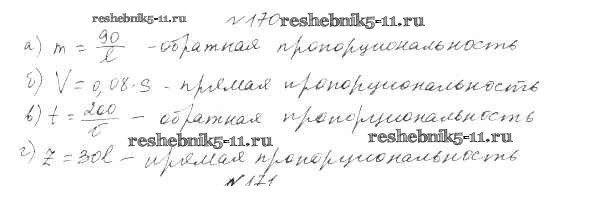 reshebnik5-11.ru №170 reshebnik5-11.ru
а) m = 90/l - обратная пропорциональность
б) V = 0,08·S - прямая пропорциональность
в) t = 200/v - обратная пропорциональность
reshebnik5-11.ru reshebnik5-11.ru
г) z = 30l - прямая пропорциональность
№171